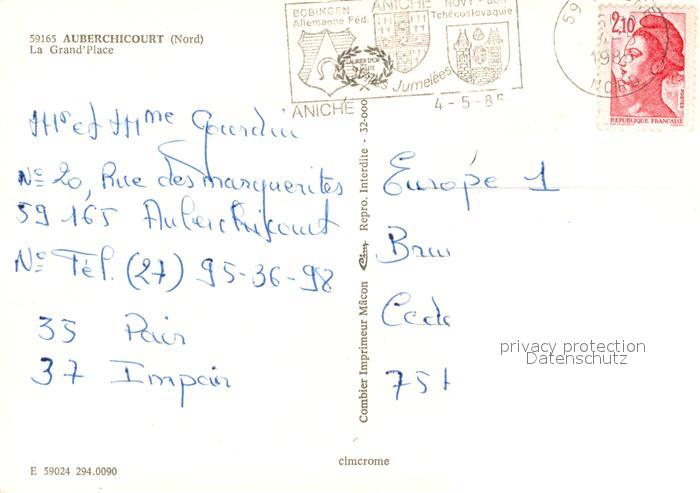 59165 AUBERCHICOURT (Nord)
La Grand'Place
BOBINGEN
Allemagne Féd.
ANICHE
NOVY - BOR
Tchécoslovaquie
Villes Jumelées
ANICHE
4-5-85
59
NORD
2,10
POSTES
REPUBLIQUE FRANCAISE
Mr et Mme Gourdin
No 20, Rue des marguerites
59 165 Auberchicourt
No Tél. (27) 95-36-98
35 Pair
37 Impair
Combier Imprimeur Mâcon Cim Repro. Interdite - 32-000
Europe 1
75
privacy protection
Datenschutz
E 59024 294.0090
cimcrome